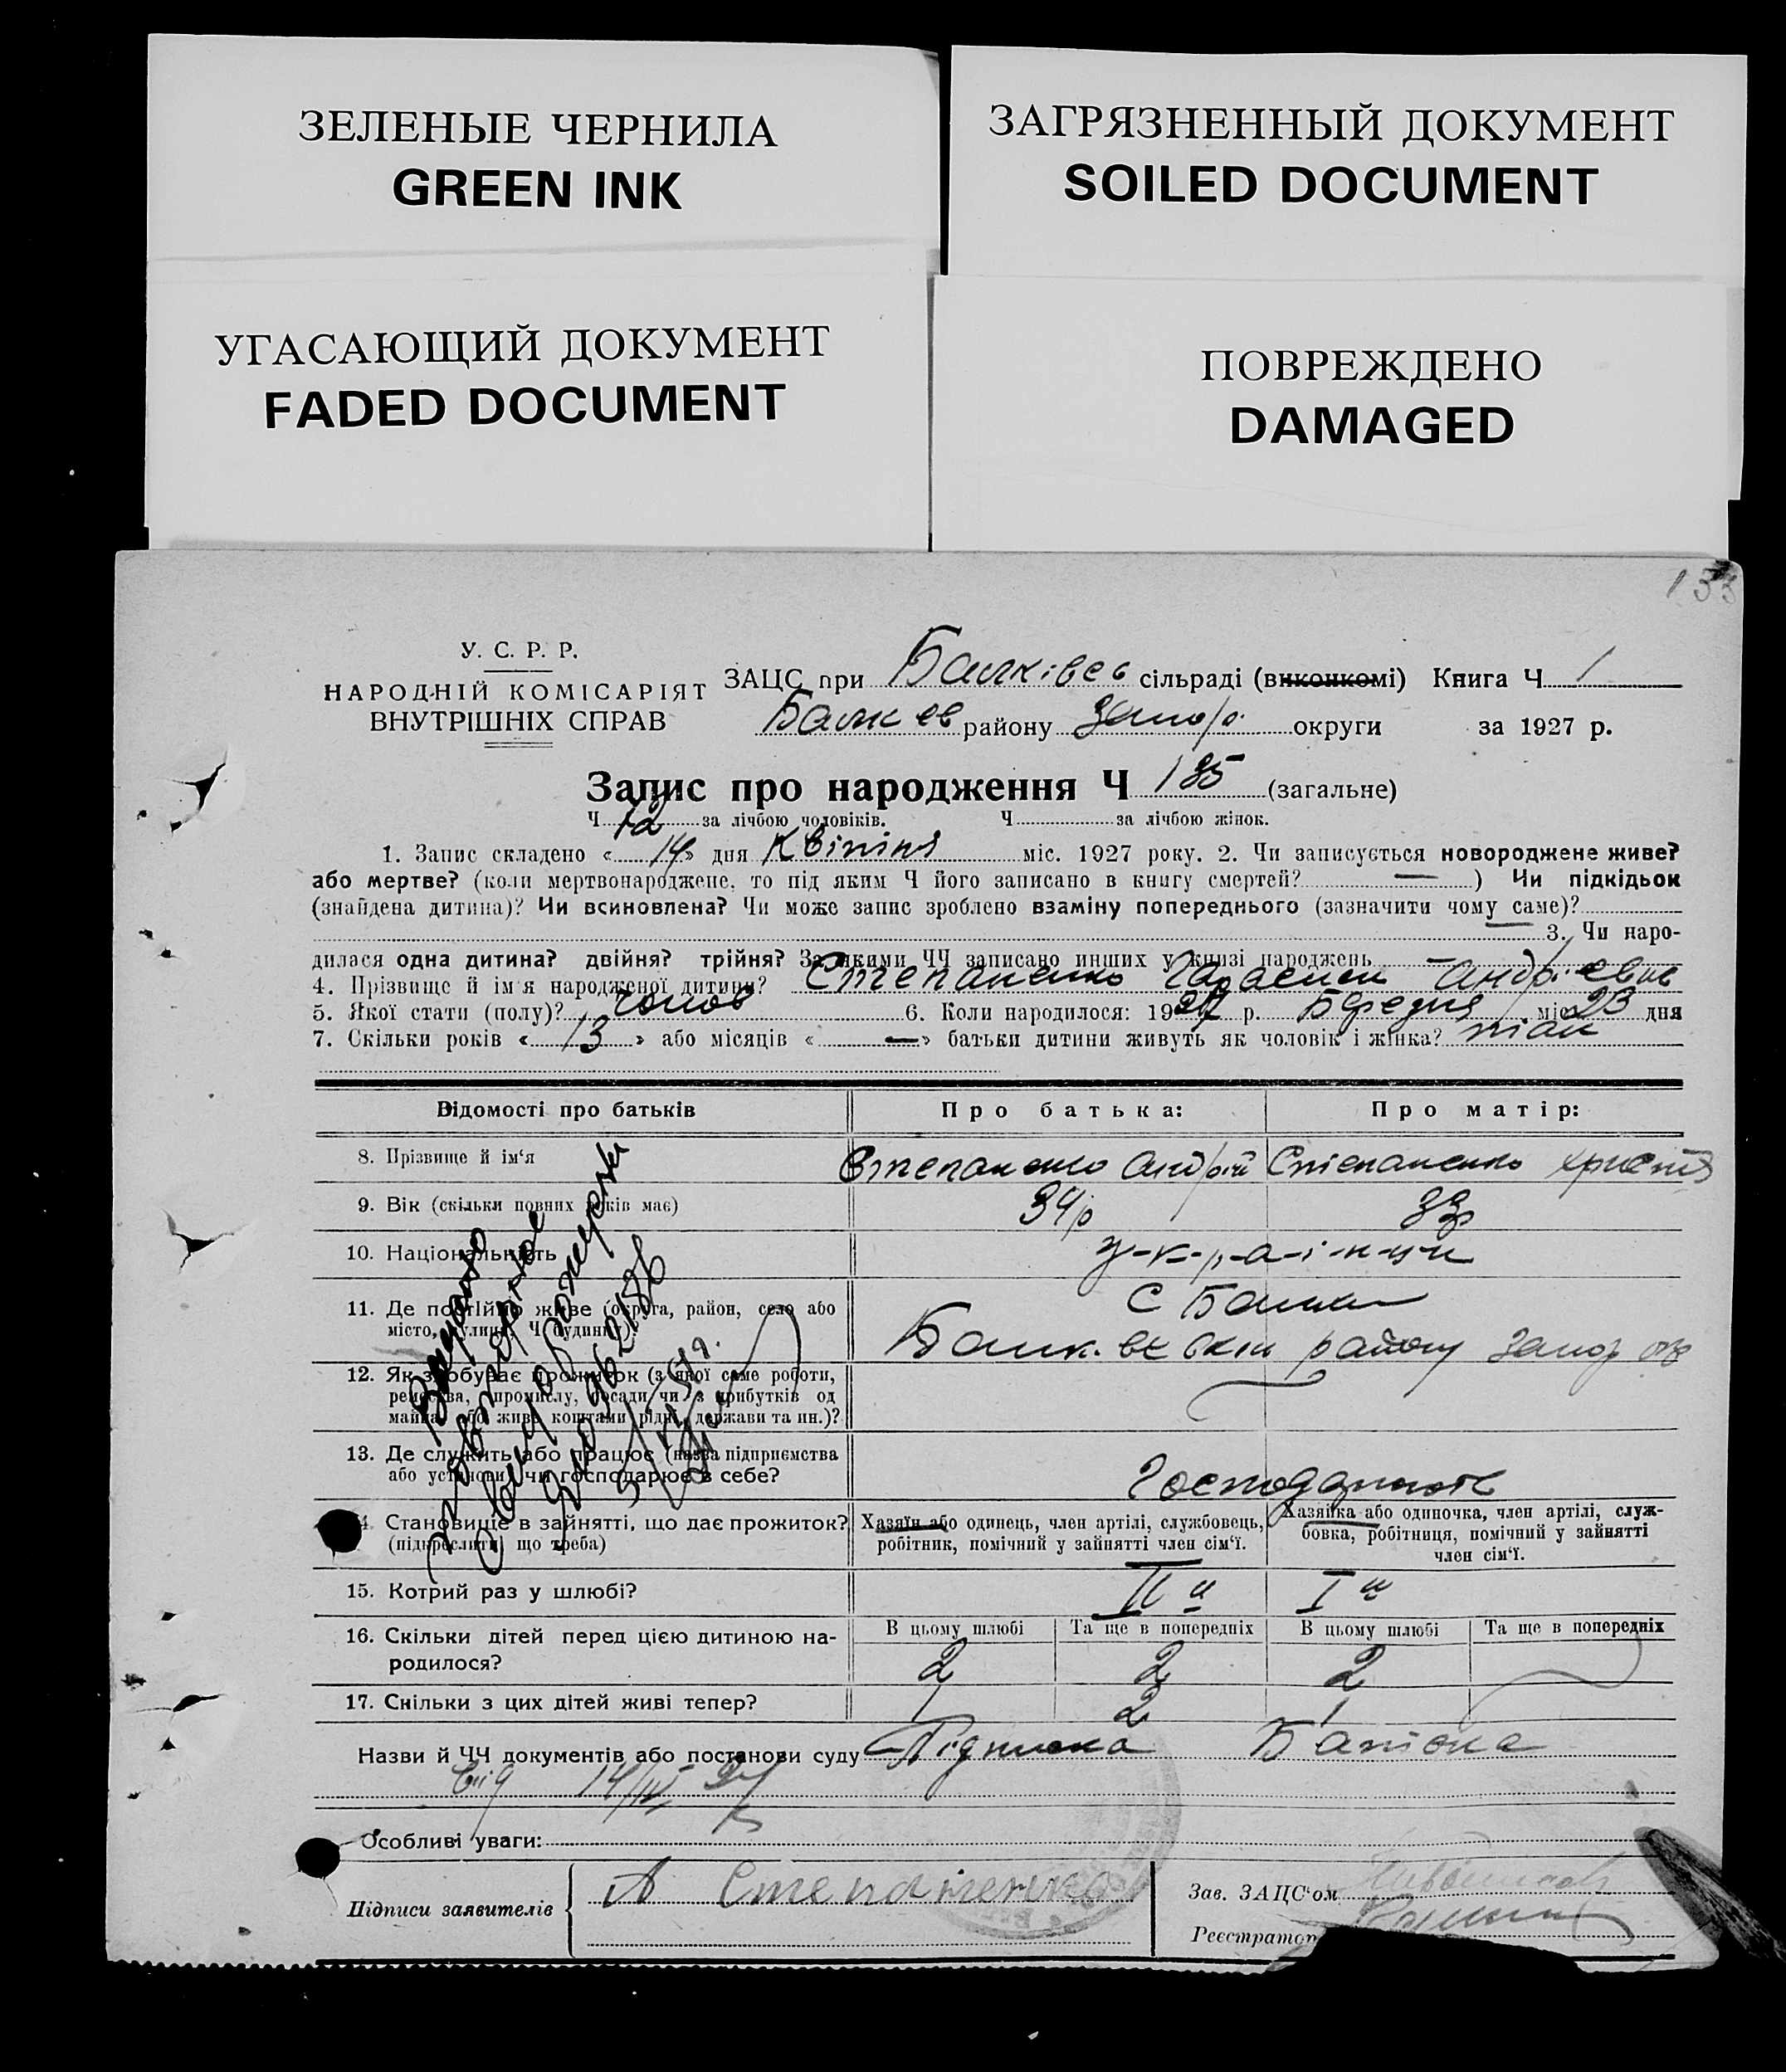 ЗЕЛЕНЫЕ ЧЕРНИЛА
GREEN INK
ЗАГРЯЗНЕННЫЙ ДОКУМЕНТ
SOILED DOCUMENT
УГАСАЮЩИЙ ДОКУМЕНТ
FADED DOCUMENT
ПОВРЕЖДЕНО
DAMAGED
133
У. С. Р. Р.
НАРОДНІЙ КОМІСАРІЯТ
ВНУТРІШНІХ СПРАВ
ЗАЦС при Балківсь сільраді (виконкомі) Книга Ч 1
Балк ев району Запор. округи за 1927 р.
Запис про народження Ч 135 (загальне)
Ч 72 за лічбою чоловіків. Ч за лічбою жінок.
1. Запис складено « 14 » дня Квітня міс. 1927 року. 2. Чи записується новороджене живе?
або мертве? (коли мертвонароджене, то під яким Ч його записано в книгу смертей? — ) Чи підкідьок
(знайдена дитина)? Чи всиновлена? Чи може запис зроблено взаміну попереднього (зазначити чому саме)?
— 3. Чи наро-
дилася одна дитина? двійня? трійня? За якими ЧЧ записано инших у книзі народжень
4. Прізвище й ім'я народженої дитини? Степаненко Гарасим Андрієвич
5. Якої стати (полу)? чолов 6. Коли народилося: 1927 р. Березня міс. 23 дня
7. Скільки років « 13 » або місяців « — » батьки дитини живуть як чоловік і жінка? так
Відомості про батьків
Про батька:
Про матір:
8. Прізвище й ім'я
Степаненко Андрій
Степаненко Христя
9. Вік (скільки повних років має)
34р
33р
10. Національність
у-к-р-а-ї-н-ці
11. Де постійно живе (округа, район, село або
місто, вулиця, Ч будинку)
с Балки
Балк. вськ району Запор окр
12. Як здобуває прожиток (з якої саме роботи,
ремества, промислу, посади чи з прибутків од
майна, або живе коштами рідні, держави та ин.)?
13. Де служить або працює (назва підприємства
або установи) чи господарює в себе?
14. Становище в зайнятті, що дає прожиток?
(підкреслити, що треба)
Хазяїн або одинець, член артілі, службовець,
робітник, помічний у зайнятті член сім'ї.
Хазяйка або одиночка, член артілі, служ-
бовка, робітниця, помічний у зайнятті
член сім'ї.
15. Котрий раз у шлюбі?
II й
I й
16. Скільки дітей перед цією дитиною на-
родилося?
В цьому шлюбі
Та ще в попередніх
В цьому шлюбі
Та ще в попередніх
2
2
2
17. Скільки з цих дітей живі тепер?
1
2
1
Назви й ЧЧ документів або постанови суду Підписка Батька
від 14/IV 27
Особливі уваги:
Підписи заявителів
А Степаненко
Зав. ЗАЦС'ом
Реєстратор